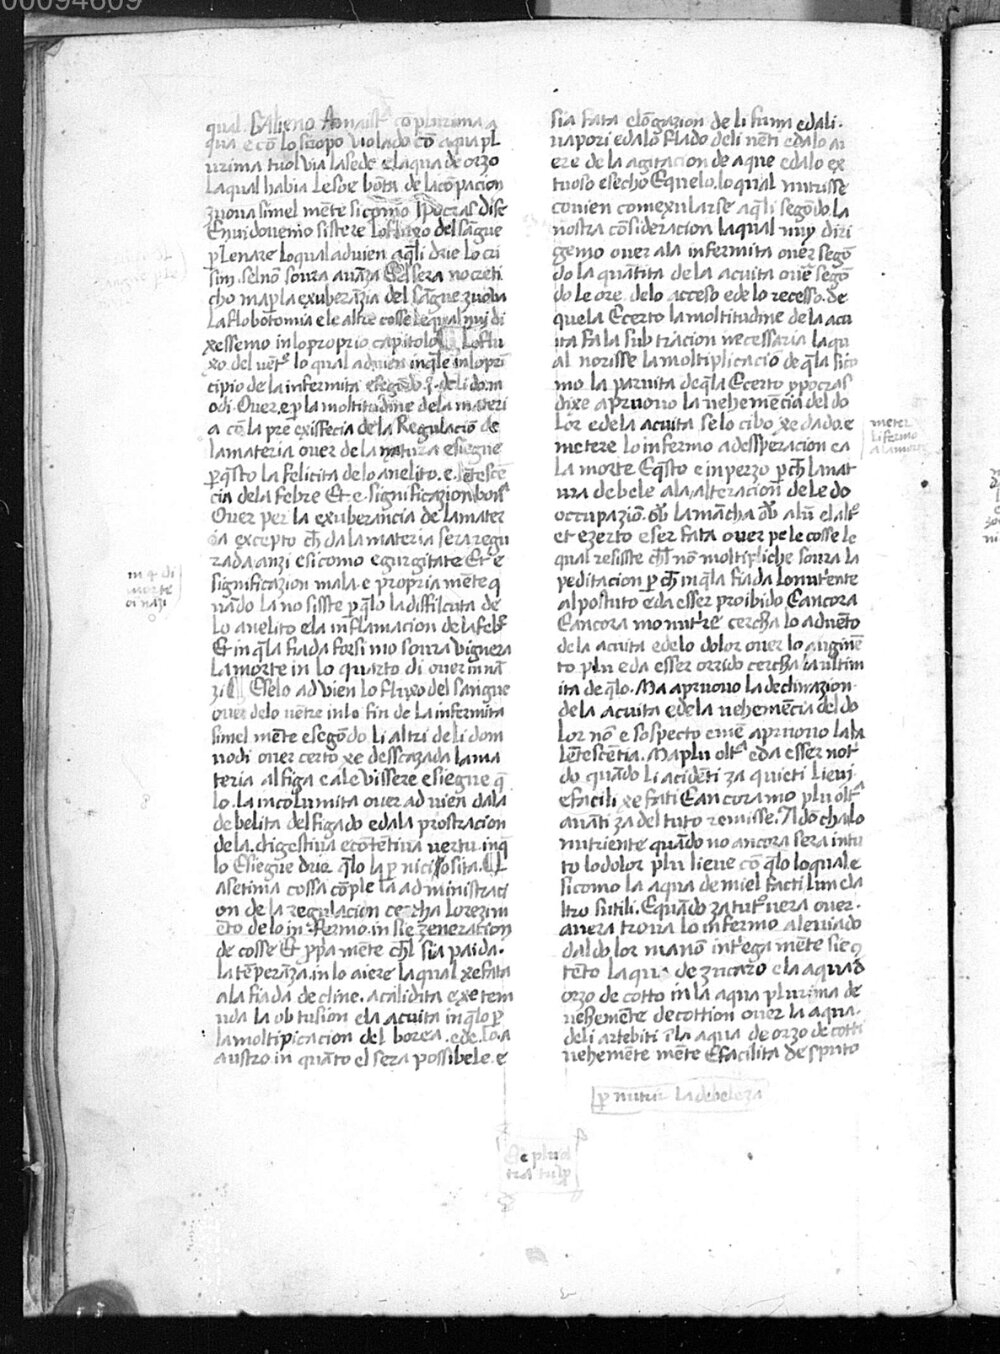 00094609
qual Galieno Amaistꝰ cō plurima a
qua e cō lo siropo violado cō aqua pl
urima tuol via la sede e la aqua de orzo
la qual habia lesoe bōta de la cōpacion
zuova simel mēte si como ypocras dise
E nui dovemo sistere lo fluxo del sāgue
p̱ lenare lo qual advien aq̄li drie lo cri
sim. se no soura avāza E el sera no creti
cho ma p̱ la exuberāzia del sāgue zuova
la flobotomia e le altre cosse le qual nui di
xessemo in lo proprio capitolo lo flu
xo del vētꝰ lo qual advien in q̄le in lo prī
cipio de la infermita e segōdo .2. deli do m
odi. Over e p̱ la moltitudine de la materi
a cō la pre existēcia de la Regulaciō de
la materia over de la natura e siegue
p̱ q̄sto la felicita de lo anelito. e. setesce
cia de la febre Et e significazion bona
Over per la exuberancia de la mater
ia excepto ch̄ da la materia sera regu
rada anzi e si como e gurgitate Et e
significazion mala. e propria mēte q
uādo la no sisste p̱ q̄lo la diffilcuta de
lo anelito e la inflamacion de la febꝰ
Et in q̄la fiada forsi mo soura vignera
la morte in lo quarto di over in nā
zi E se lo advien lo fluxo del sangue
over de lo vētre in lo fin de la infermita
simel mēte e segōdo li altri deli dom
modi over certo xe desscazada la ma
teria al figa e a le vissere e siegue q̄
lo. la incolumita over advien dala
debelita del figado e dala prostracion
de la digestiva e cōtētiva vertu. in q̄
lo E siegue drio q̄lo la p̱niciosita.
a setima cossa cōple la administraci
on de la regulacion cercha lo rezim
ēto de lo in fermo. in sie zeneration
de cosse Et p̱pa mēte ch̄l sia paida.
la tēperāza. in lo aiere la qual xe fata
a la fiada de cline. a calidita e xe tem
uda la obtusion e la acuita in q̄lo p̱
la moltipicacion del borea. e de. lo. a
austro in quāto el sera possibele. e
sia fata elōgazion de li fumi e dali.
vapori e dalo fiado deli vēti e dalo ai
ere de la agitacion de aque e dalo ex
tuoso e secho E quelo. lo qual nutrisse
convien comexularse a q̄li segōdo la
nostra cōsideracion la qual nuy diri
gemo over ala infermita over segō
do la quātita de la acuita ove segō
do le ore de lo acceso e de lo recesso. de
quela E certo la moltitudine de la acu
ita fa la subtracion necessaria la qu
al norisse la moltiplicaciō de q̄la sico
mo la parvita de q̄la E certo ypocras
dixe apruovo la vehemēcia del do
lor e de la acuita se lo cibo xe dado. e
metere lo infermo a desperacion e a
la morte E q̄sto e inperzo p̱ ch̄ la nat
ura debele ala alteracion de le do
et e certo e ser fata over pe le cosse le
qual resisste ch̄l nō moltipliche soura la
peditacion p̱ ch̄ in q̄la fiada lo nutrente
al postuto e da esser proibido E ancora
E ancora mo nutꝰre cercha lo advēto
de la acuita e de lo dolor over lo augmē
to plu e da esser orrido cercha la ultim
ita de q̄lo. Ma apruovo la declinazion
de la acuita e de la vehemēcia del do
lor nō e sospecto e mē apruovo la la
lētescētia. Ma plu oltꝰ e da esser notꝰ
do quādo li acidēti za quieti lievi.
e facili xe fati E ancora mo plu oltꝰ
avāti za del tuto remisse. Adōcha lo
nutriente quādo no ancora sera intu
to lo dolor plu lieve cō q̄lo lo qual e
sicomo la aqua de miel facti lun cla
ltro sutili. E quādo za tutꝰ vera over.
avera trova lo infermo aleviado
dal dolor mano intꝰega mēte sie 9
tēto la qua de zucaro e la aqua d
orzo de cotto in la aqua plurima de
vehemēte decottion over la aqua.
deli artebiti i la aqua de orzo de cotti
vehemēte mēte E facilita de sputo
meter
linfermo
a la morte
morte
p̱ nutrir la debeleza